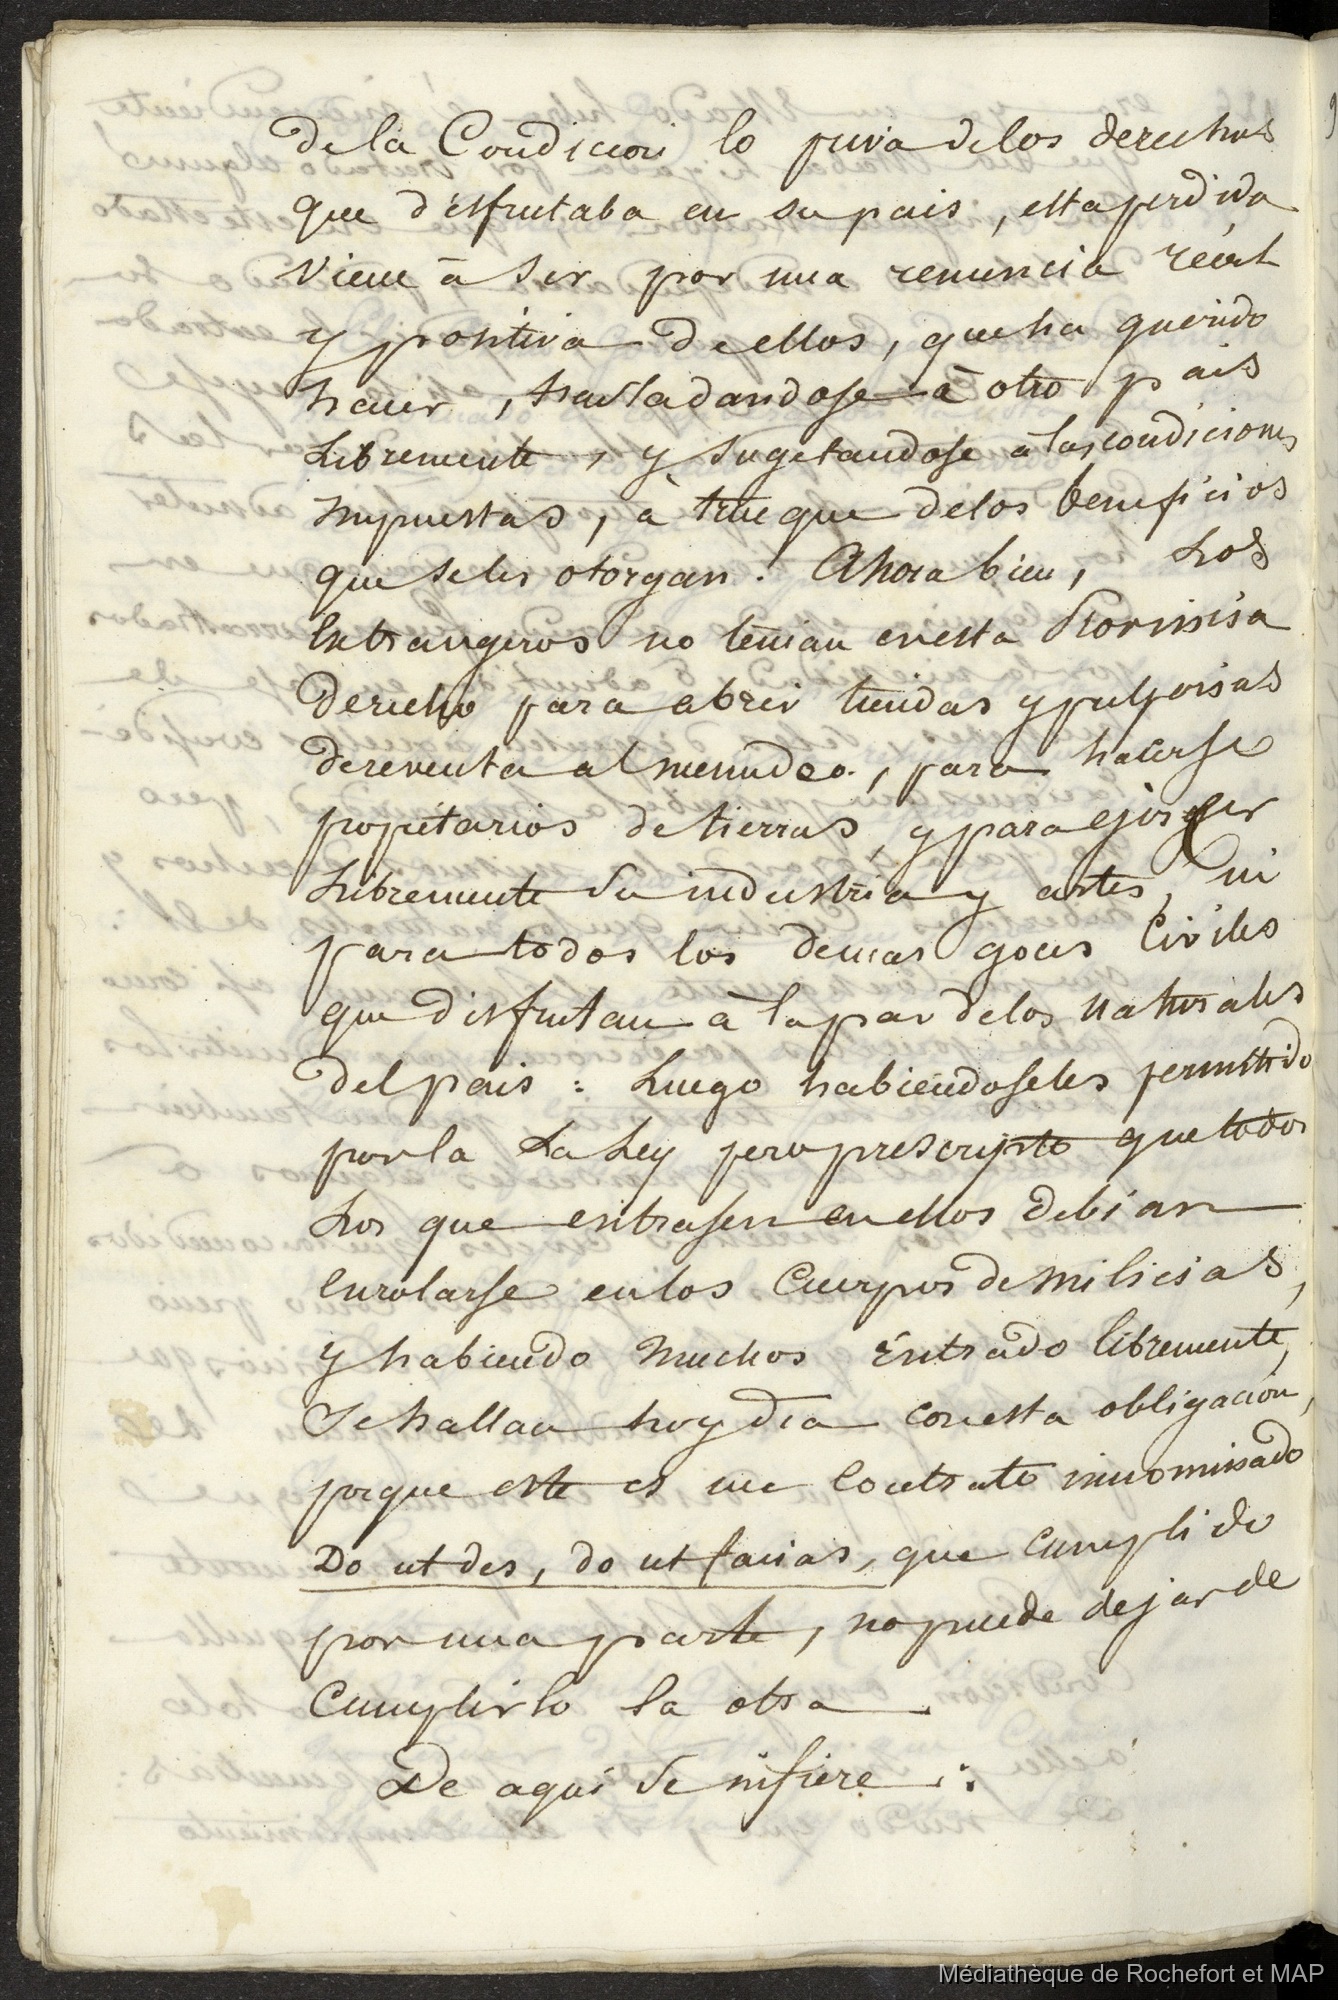 dela Condicion lo priva delos derechos
que disfrutaba en su pais, esta perdida
viene à ser por una renuncia réal
y positiva de ellos, que ha querido
hacer, trasladandose à otro pais
Libremente, y sugetandose à las condiciones
impuestas, à trueque delos beneficios
que seles otorgan. Ahora bien, Los
Extrangeros no tenian en esta Provincia
derecho para abrir tiendas y pulperias
dereventa al menudeo, para hacerse
propietarios de tierras, y para ejercer
Libremente su industria y artes, ni
para todos los demas goces Civiles
que disfrutan à la par delos naturales
del pais: Luego habiendoseles permitido
por la La Ley pero prescripto que todos
Los que entrasen en ellos debian
enrolarse en los Cuerpos de milicias,
y habiendo muchos entrado libremente,
se hallan hoy dia con esta obligacion,
porque este es un Contrato innominado
Do ut des, do ut facias, que cumplido
por una parte, no puede dejar de
Cumplirlo la otra.
De aqui se infiere:
Médiathèque de Rochefort et MAP